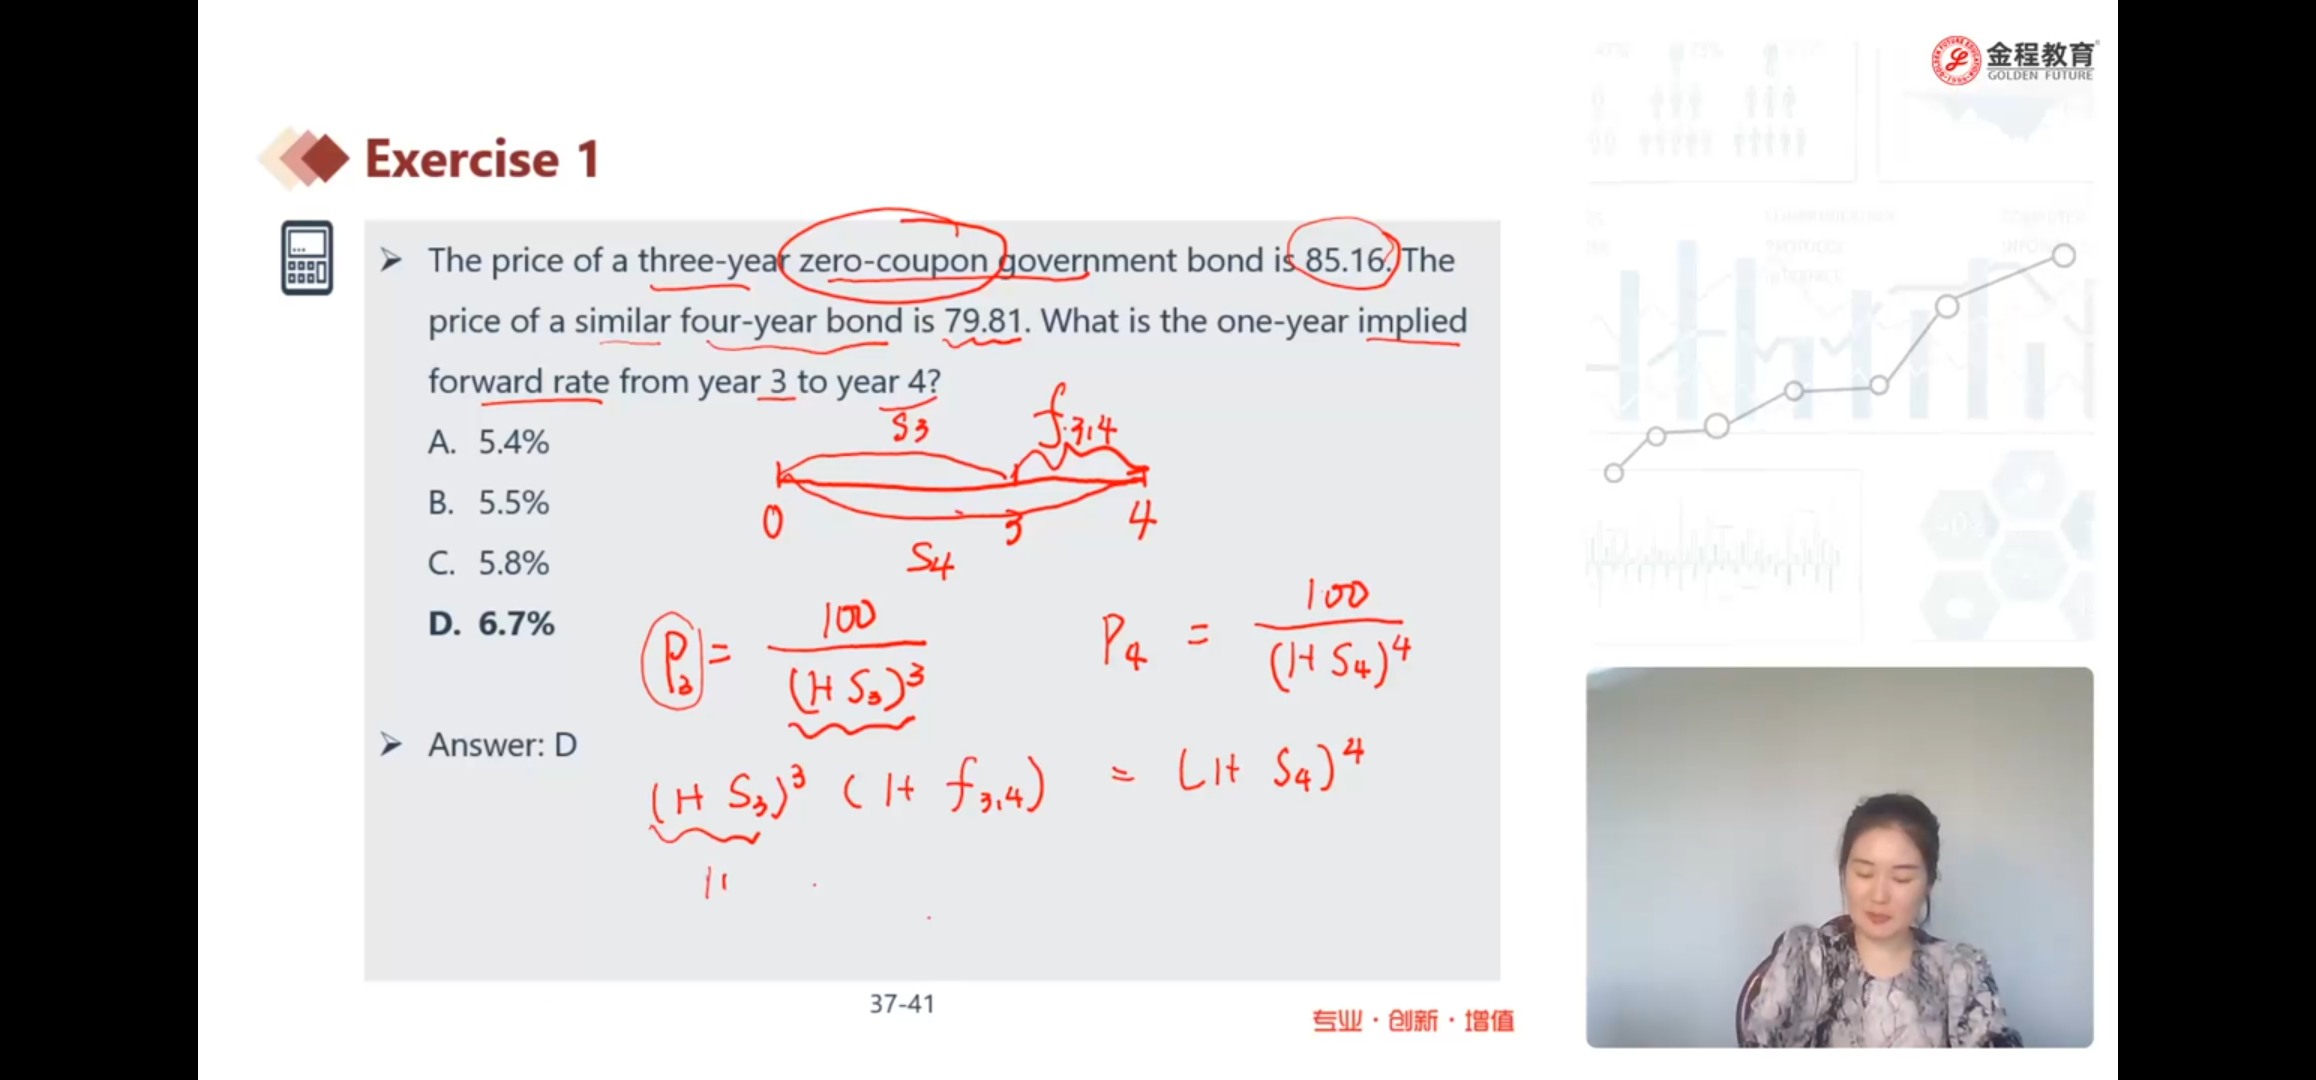 金程教育
GOLDEN FUTURE
Exercise 1
➤ The price of a three-year zero-coupon government bond is 85.16. The
price of a similar four-year bond is 79.81. What is the one-year implied
forward rate from year 3 to year 4?
A. 5.4%
B. 5.5%
C. 5.8%
D. 6.7%
S3
f3,4
0
3
4
S4
P3 = 100 / (1+ S3)^3
P4 = 100 / (1+ S4)^4
➤ Answer: D
(1+ S3)^3 (1+ f3,4) = (1+ S4)^4
37-41
专业·创新·增值